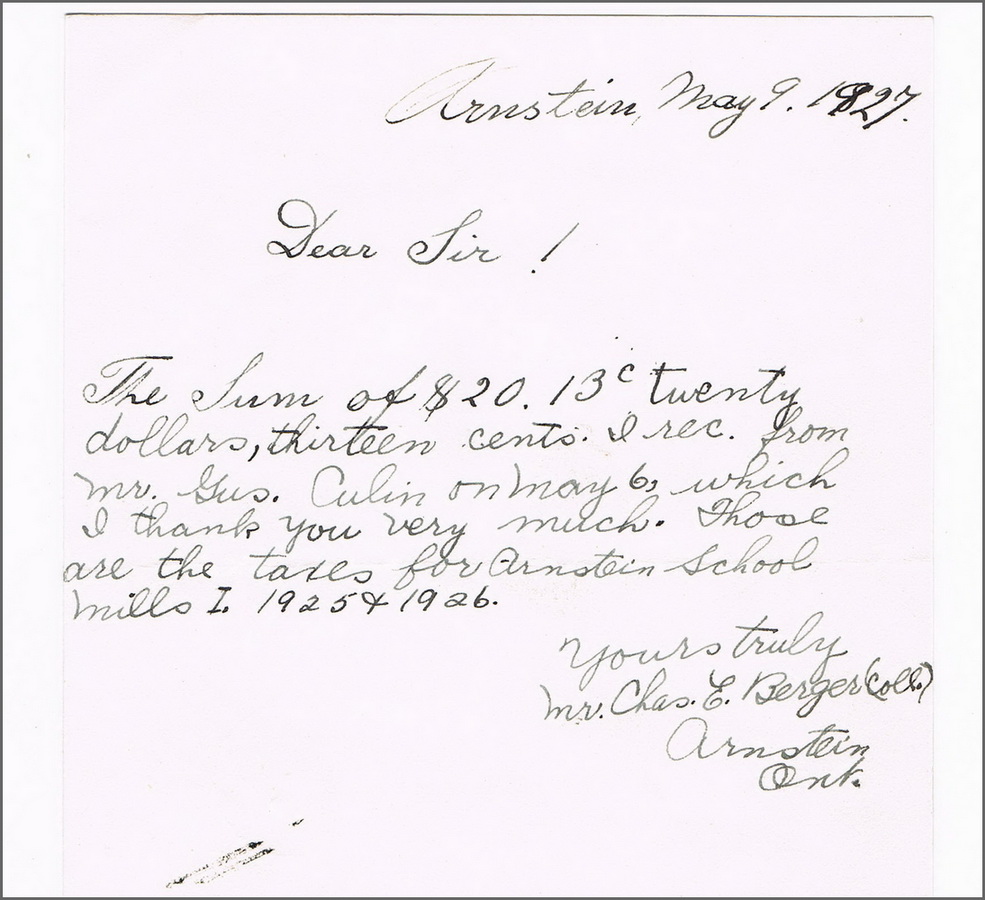 Arnstein, May 9. 1927.
Dear Sir !
The Sum of $20. 13c twenty
dollars, thirteen cents. I rec. from
Mr. Gus. Culin on May 6, which
I thank you very much. Those
are the taxes for Arnstein School
Mills I. 1925 & 1926.
Yours truly
Mr. Chas. E. Berger (Coll.)
Arnstein
Ont.